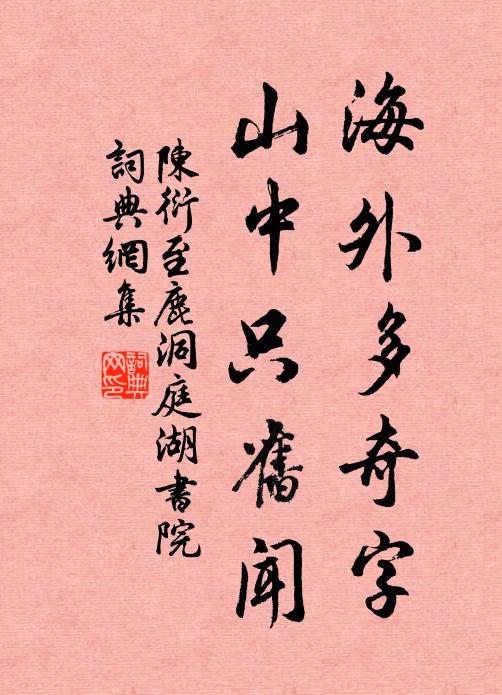 海外多奇字
山中只舊闻
陳衍至鹿洞庭湖書院
詞典網集
詞典網印